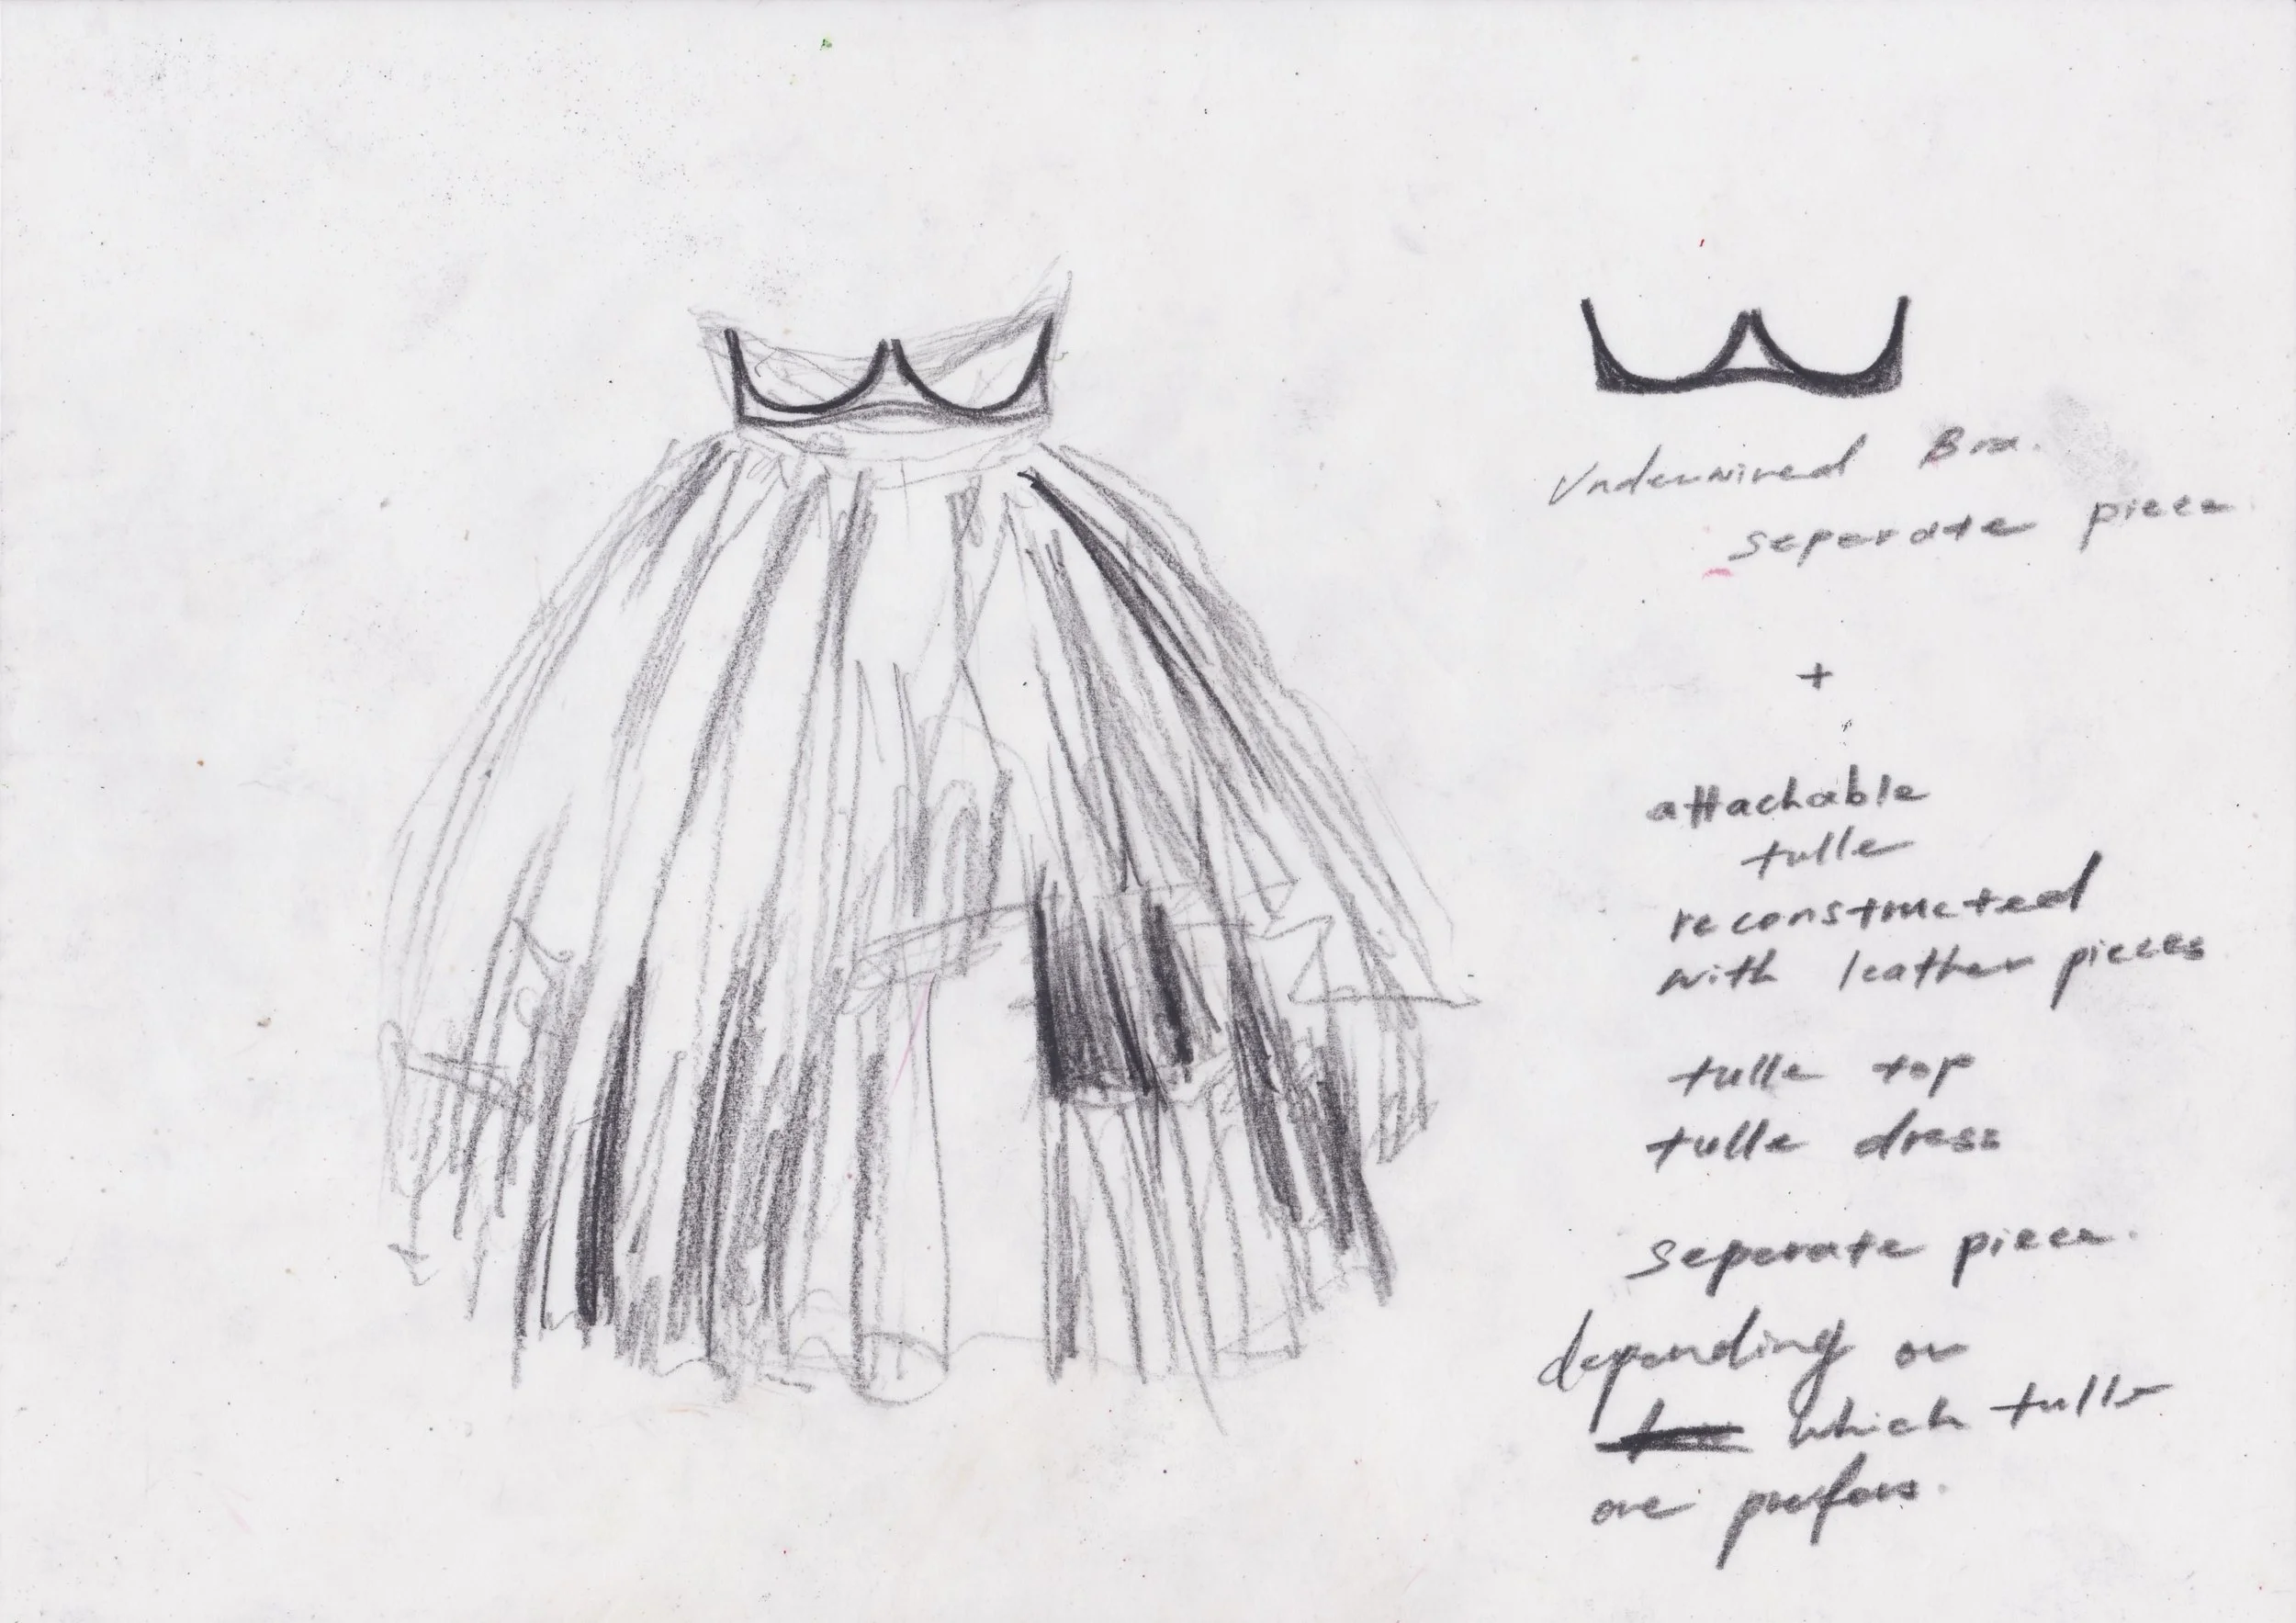 Underwired Bra.
separate piece.
+
attachable
tulle
reconstructed
with leather pieces
tulle top
tulle dress
seperate piece.
depending on
which tulle
one prefers.